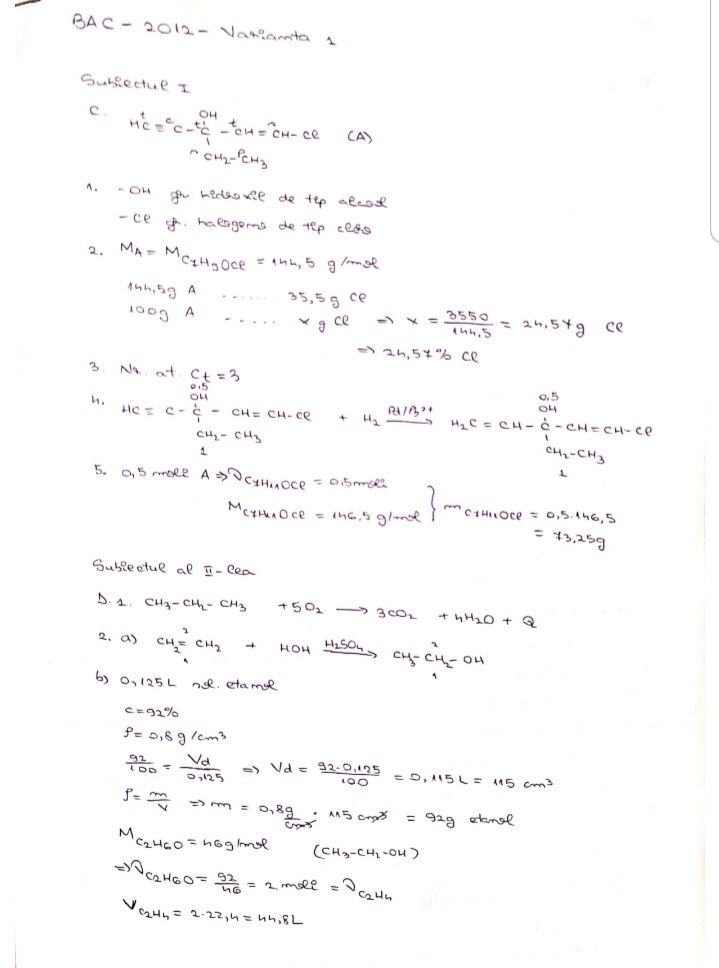 BAC - 2012 - Varianta 1
Subiectul I
C.
t c OH t n
HC ≡ C - C - CH = CH - Cl (A)
n CH2 - CH3 p
1. - OH gr. hidroxil de tip alcool
- Cl gr. halogenă de tip clor
2. MA = MC7H9OCl = 144,5 g/mol
144,5g A ....... 35,5g Cl
100g A ..... x g Cl => x = 3550/144,5 = 24,57g Cl
=> 24,57% Cl
3. Nr. at. Ct = 3
0,5 0,5
OH OH
4. HC ≡ C - C - CH = CH - Cl + H2 Pd/Pb2+ → H2C = CH - C - CH = CH - Cl
CH2 - CH3 CH2 - CH3
1 1
5. 0,5 moli A => νC7H11OCl = 0,5moli
MC7H11OCl = 146,5 g/mol } mC7H11OCl = 0,5.146,5
= 73,25g
Subiectul al II-lea
D. 1. CH3 - CH2 - CH3 + 5O2 → 3CO2 + 4H2O + Q
2 2
2. a) CH2 = CH2 + HOH H2SO4 → CH3 - CH2 - OH
1 1
b) 0,125L sol. etanol
c = 92%
ρ = 0,8 g/cm3
92/100 = Vd/0,125 => Vd = 92.0,125/100 = 0,115L = 115 cm3
ρ = m/V => m = 0,8g/cm3 . 115 cm3 = 92g etanol
MC2H6O = 46g/mol (CH3-CH2-OH)
=> νC2H6O = 92/46 = 2 moli = νC2H4
VC2H4 = 2.22,4 = 44,8L